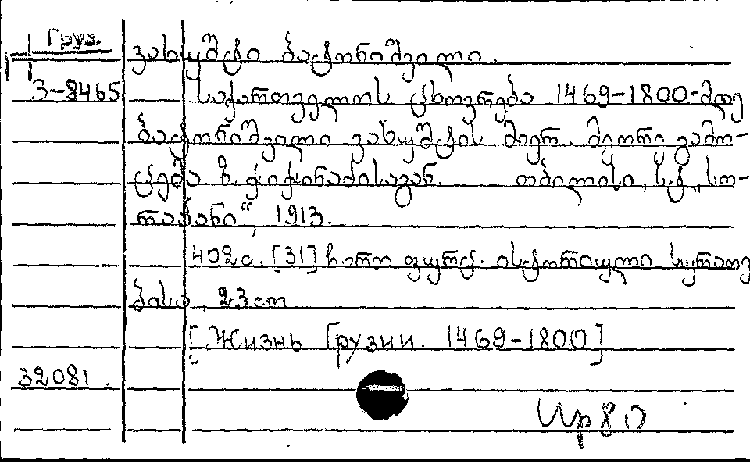 Груз.
ვახუშტი ბატონიშვილი.
3-8465 საქართველოს ცხოვრება 1469-1800-მდე
ბატონიშვილი ვახუშტის მიერ. მეორე გამო-
ცემა ზ. ჭიჭინაძისაგან. თბილისი, ს.ტ. „სო-
რაპანი“, 1913.
402გ. [31] ჩართ. ფურც. ისტორიული სურათე-
ბისა, 23 cm
[Жизнь Грузии. 1469-1800]
32081.
Ир 80